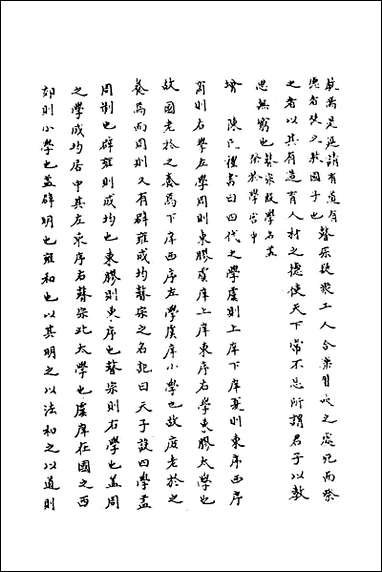 執焉是延請有道有
德者使之教國子也
瞽宗教眾工人合樂習吹之處死而祭
之者以其有造育人材之德使天下常不忘所謂君子以教
思無窮也
瞽宗殷學名蓋
祭於學宮中
增 陳氏禮書曰四代之學虞則上庠下庠夏則東序西序
商則右學左學周則東膠虞庠上庠東序右學東膠太學也
故國老於之養焉下庠西序左學虞庠小學也故庶老於之
養焉而周則又有辟雍成均瞽宗之名記曰天子設四學蓋
周制也辟雍則成均也東膠則東序也瞽宗則右學也蓋周
之學成均居中其左東序右瞽宗此太學也虞庠在國之西
郊則小學也蓋辟明也雍和也以其明之以法和之以道則